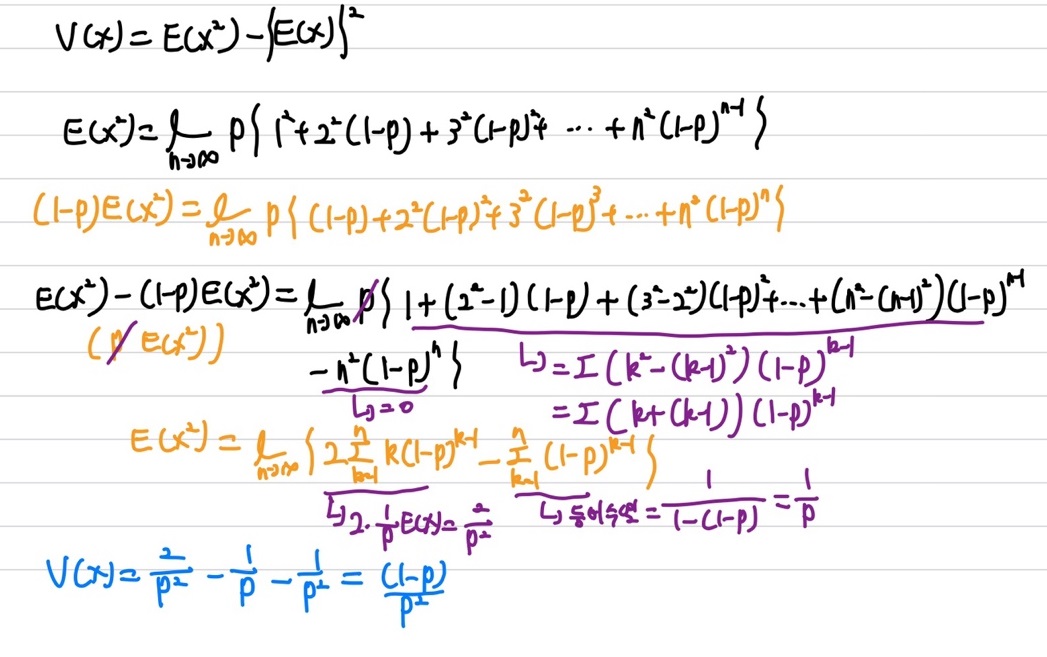 V(x) = E(x²) - {E(x)}²
E(x²) = lim_{n→∞} p{ 1² + 2²(1-p) + 3²(1-p)² + ... + n²(1-p)^{n-1} }
(1-p)E(x²) = lim_{n→∞} p{ (1-p) + 2²(1-p)² + 3²(1-p)³ + ... + n²(1-p)^n }
E(x²) - (1-p)E(x²) = lim_{n→∞} p{ 1 + (2²-1)(1-p) + (3²-2²)(1-p)² + ... + (n²-(n-1)²)(1-p)^{n-1}
(p E(x²))
- n²(1-p)^n }
↳ = Σ(k²-(k-1)²)(1-p)^{k-1}
↳ = 0
= Σ(k+(k-1))(1-p)^{k-1}
E(x²) = lim_{n→∞} { 2 Σ_{k=1}^{n} k(1-p)^{k-1} - Σ_{k=1}^{n} (1-p)^{k-1} }
↳ 2·1/p E(x) = 2/p²
↳ 등비수열 = 1/(1-(1-p)) = 1/p
V(x) = 2/p² - 1/p - 1/p² = (1-p)/p²